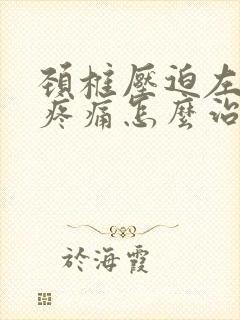 頚柱壓迫左
疼痛怎麼治
於海霞